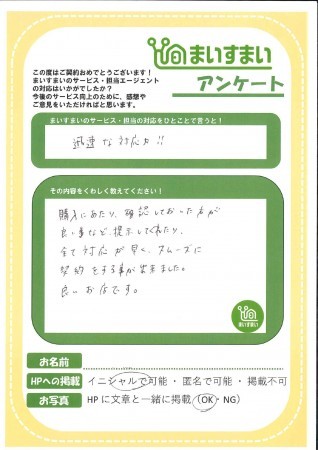 まいすまい
アンケート
この度はご契約おめでとうございます！
まいすまいのサービス・担当エージェント
の対応はいかがでしたか？
今後のサービス向上のために、感想や
ご意見をいただければと思います。
まいすまいのサービス・担当の対応をひとことで言うと！
迅速な対応力!!
その内容をくわしく教えてください！
購入にあたり、確認しておった方が
良い事など、提示してくれたり、
全て対応が早く、スムーズに
契約をする事が出来ました。
良いお店です。
まいすまい
お名前
HPへの掲載 イニシャルで可能 ・ 匿名で可能 ・ 掲載不可
お写真 HPに文章と一緒に掲載（OK・NG）